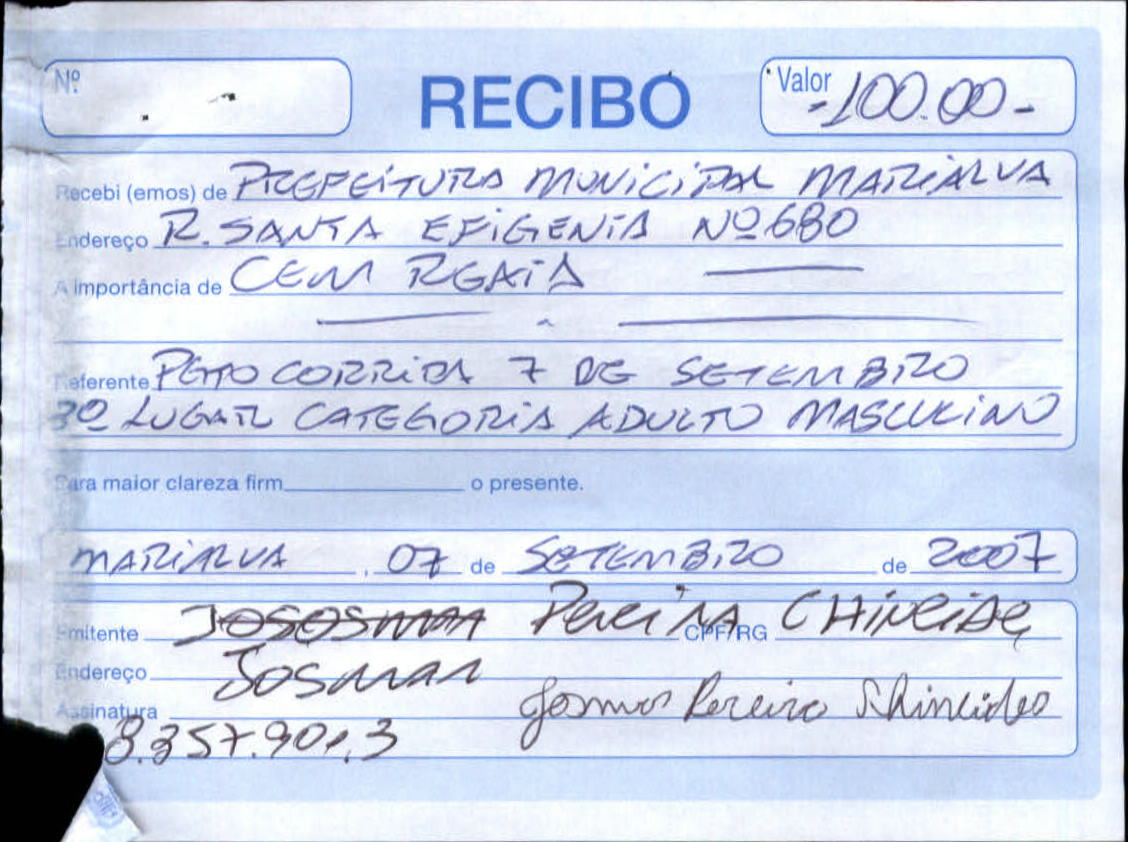 Nº
RECIBO
Valor -100.00-
Recebi (emos) de PREFEITURA MUNICIPAL MARIALVA
Endereço R. SANTA EFIGENIA Nº 680
A importância de CEM REAIS
Referente PETO CORRIDA 7 DE SETEMBRO
3º LUGAR CATEGORIA ADULTO MASCULINO
Para maior clareza firm____________ o presente.
MARIALVA, 07 de SETEMBRO de 2007
Emitente Pereira CPF/RG CHINEIDE
Endereço Josmar
Assinatura Josmar Pereira Shineider
8.357.901.3